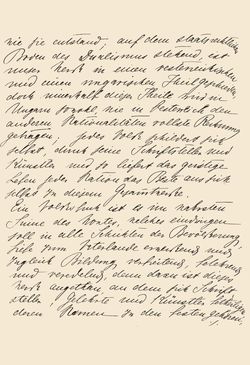 wie sie entstand; auf dem staatsrechtlichen
Boden des Dualismus stehend, ist
unser Werk in einen österreichischen
und einen ungarischen Theil geschieden,
doch innerhalb dieser Theile wird in
Ungarn sowohl, wie in Österreich den
anderen Nationalitäten vollste Rechnung
getragen; jedes Volk schildert sich
selbst, durch seine Schriftsteller und
Künstler und so liefert das geistige
Leben jeder Nation das Beste aus sich
selbst zu diesem Gesammtwerke.
Ein Volksbuch ist es im wahrsten
Sinne des Wortes, welches eindringen
soll in alle Schichten der Bevölkerung,
Liebe zum Vaterlande erweckend und
zugleich Bildung verbreitend, belehrend
und veredelnd, denn dazu ist dieses
Werk angethan, an dem sich Schrift-
steller, Gelehrte und Künstler
deren Namen zu den besten gehören,